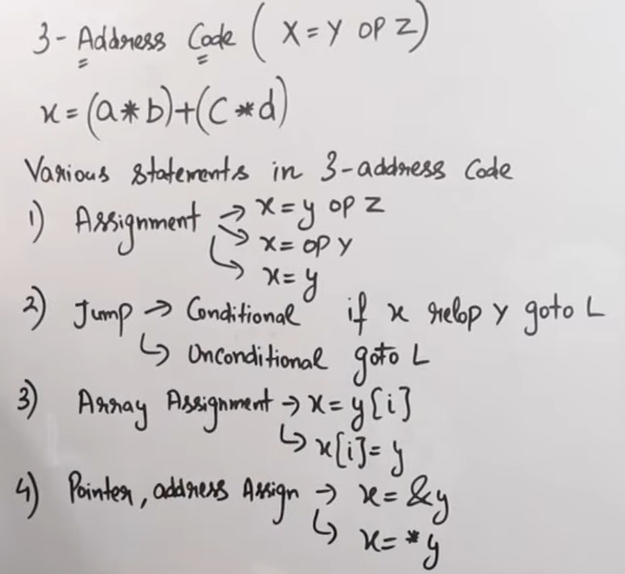 3-Address Code ( X = Y OP Z )
x = (a * b) + (c * d)
Various Statements in 3-address Code
1) Assignment → x = y op z
↘ x = op y
↳ x = y
2) Jump → Conditional if x relop y goto L
↳ Unconditional goto L
3) Array Assignment → x = y[i]
↳ x[i] = y
4) Pointer, address Assign → x = &y
↳ x = *y